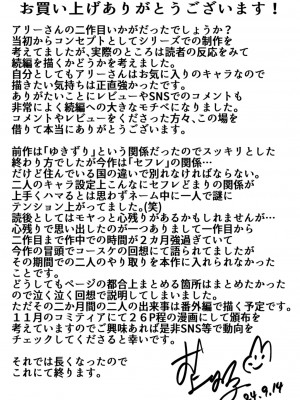 お買い上げありがとうございます!
アリーさんの二作目いかがだったでしょうか?
当初からコンセプトとしてシリーズでの制作を
考えてましたが、実際のところは読者の反応をみて
続編を描くかどうかを考えました。
自分としてもアリーさんはお気に入りのキャラなので
描きたい気持ちは正直強かったです。
ありがたいことにレビューやSNSでのコメントも
非常によく続編への大きなモチベになりました。
コメントやレビューをくださった方々、この場を
借りて本当にありがとうございます。
前作は「ゆきずり」という関係だったのでスッキリとした
終わり方でしたが今作は「セフレ」の関係…
だけど住んでいる国の違いで別れなければならない。
二人のキャラ設定上こんなにセフレどまりの関係が
上手くハマるとは思わずネーム中に一人で謎に
テンション上がってました。(笑)
読後としてはモヤっと心残りがあるかもしれませんが…
心残りで思い出したのが一つありまして一作目から
二作目まで作中での時間が2ヵ月強過ぎていて
今作の冒頭でコースケの回想にて語られてましたが
その期間での二人のやり取りを本作に入れられなかった
ことです。
どうしてもページの都合上まとめる箇所はまとめたかった
ので泣く泣く回想で説明してしまいました。
ただその二か月間の二人の出来事は番外編で描く予定です。
11月のコミティアにて26P程の漫画にして頒布を
考えていますのでご興味あれば是非SNS等で動向を
チェックしてくださると幸いです。
それでは長くなったので
これにて終わります。
24.9.14